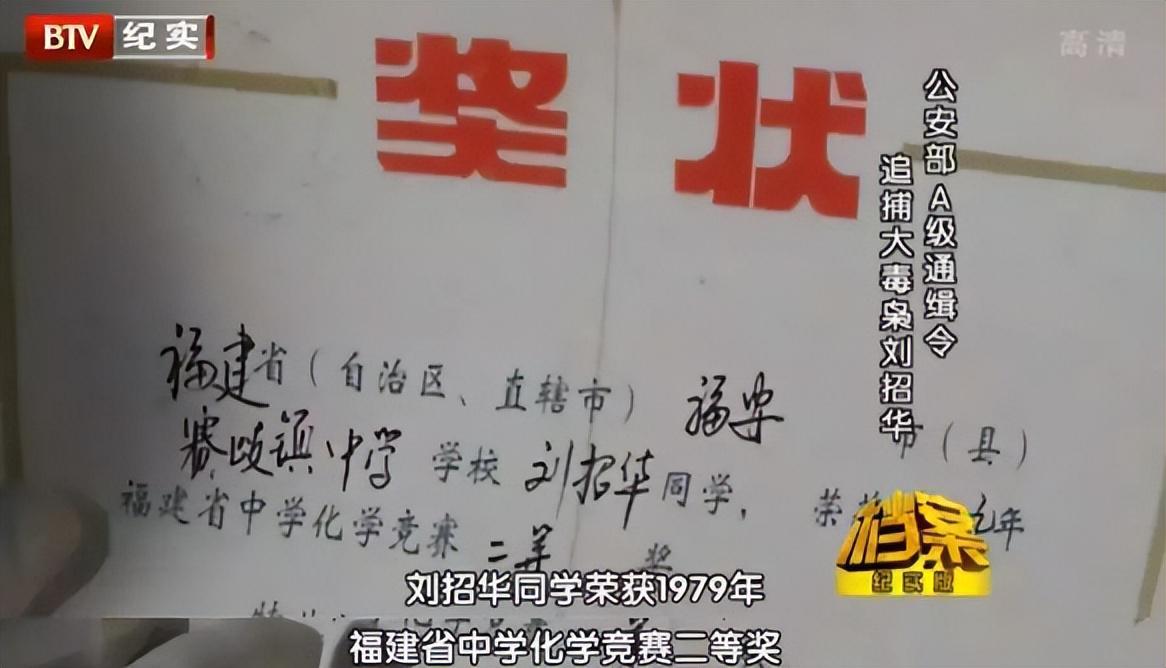 BTV 纪实
高清
奖状
公安部A级通缉令
追捕大毒枭刘招华
福建省（自治区、直辖市）福安市（县）
赛岐镇中学学校刘招华同学，荣
九年
福建省中学化学竞赛二等奖
档案
纪实版
刘招华同学荣获1979年
福建省中学化学竞赛二等奖